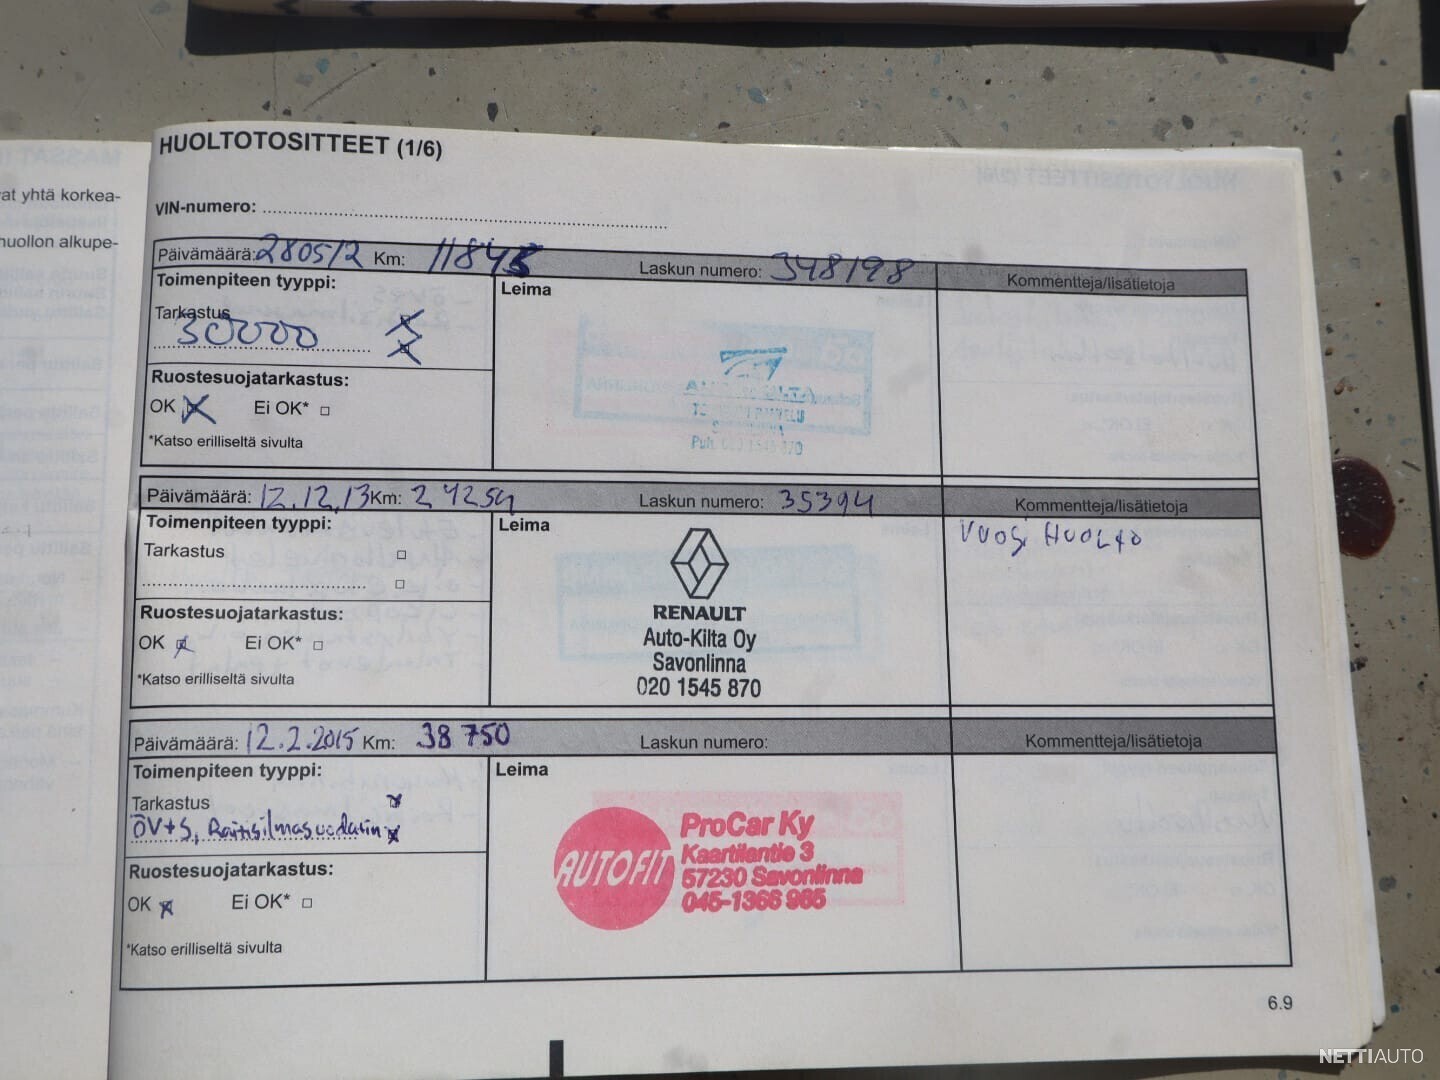 at yhtä korkea-
huollon alkupe-
HUOLTOTOSITTEET (1/6)
VIN-numero:
Päivämäärä: 280512 Km: 11845 Laskun numero: 348198 Kommentteja/lisätietoja
Toimenpiteen tyyppi: Leima
Tarkastus
30000
Ruostesuojatarkastus:
OK Ei OK*
*Katso erilliseltä sivulta
Puh. 020 1545 870
Päivämäärä: 12.12.13 Km: 24254 Laskun numero: 35394 Kommentteja/lisätietoja
Toimenpiteen tyyppi: Leima VUOSI HUOLTO
Tarkastus
Ruostesuojatarkastus:
OK Ei OK*
*Katso erilliseltä sivulta
RENAULT
Auto-Kilta Oy
Savonlinna
020 1545 870
Päivämäärä: 12.2.2015 Km: 38 750 Laskun numero: Kommentteja/lisätietoja
Toimenpiteen tyyppi: Leima
Tarkastus
ÖV+S, Raitisilmasuodatin
Ruostesuojatarkastus:
OK Ei OK*
*Katso erilliseltä sivulta
AUTOFIT
ProCar Ky
Kaartilantie 3
57230 Savonlinna
045-1366 965
6.9
NETTIAUTO